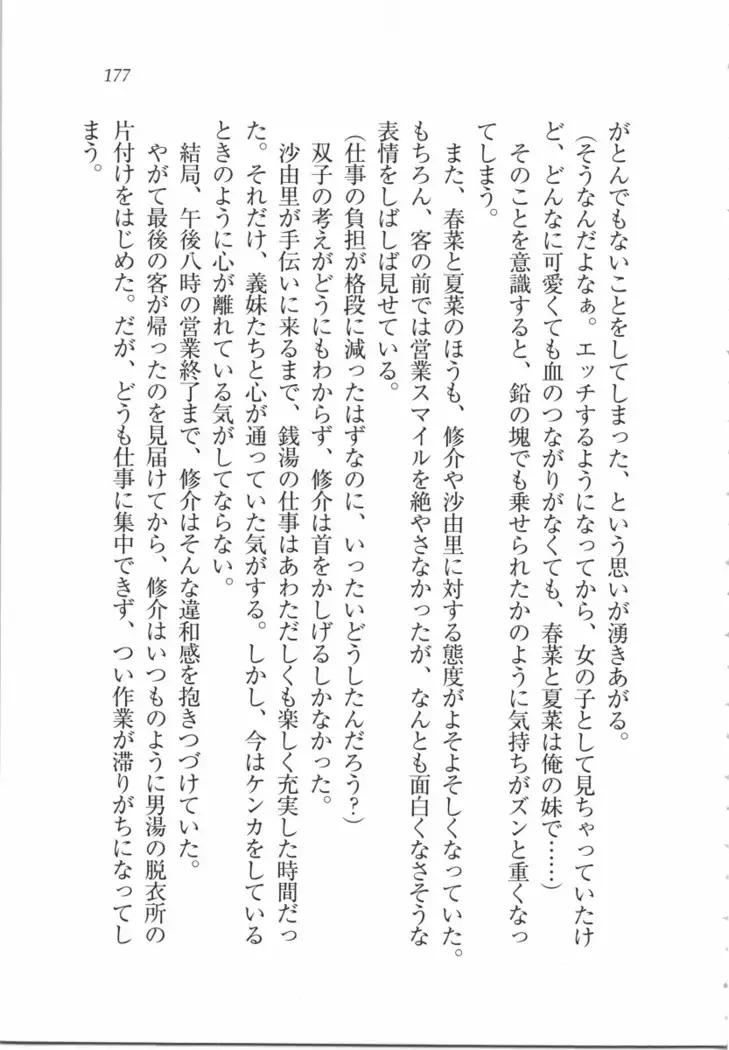 177
がとんでもないことをしてしまった、という思いが湧きあがる。
（そうなんだよなぁ。エッチするようになってから、女の子として見ちゃっていたけ
ど、どんなに可愛くても血のつながりがなくても、春菜と夏菜は俺の妹で……）
そのことを意識すると、鉛の塊でも乗せられたかのように気持ちがズンと重くなっ
てしまう。
また、春菜と夏菜のほうも、修介や沙由里に対する態度がよそよそしくなっていた。
もちろん、客の前では営業スマイルを絶やさなかったが、なんとも面白くなさそうな
表情をしばしば見せている。
（仕事の負担が格段に減ったはずなのに、いったいどうしたんだろう？）
双子の考えがどうにもわからず、修介は首をかしげるしかなかった。
沙由里が手伝いに来るまで、銭湯の仕事はあわただしくも楽しく充実した時間だっ
た。それだけ、義妹たちと心が通っていた気がする。しかし、今はケンカをしている
ときのように心が離れている気がしてならない。
結局、午後八時の営業終了まで、修介はそんな違和感を抱きつづけていた。
やがて最後の客が帰ったのを見届けてから、修介はいつものように男湯の脱衣所の
片付けをはじめた。だが、どうも仕事に集中できず、つい作業が滞りがちになってし
まう。